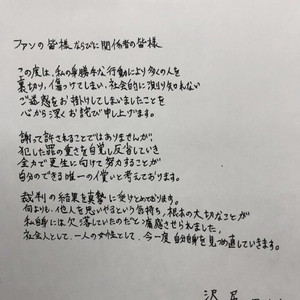 ファンの皆様ならびに関係者の皆様
この度は、私の身勝手な行動により多くの人を
裏切り、傷つけてしまい、社会的に計り知れない
ご迷惑をお掛けしてしまいましたことを
心から深くお詫び申し上げます。
謝って許されることではありませんが、
犯した罪の重さを自覚し反省していき
全力で更生に向けて努力することが
自分のできる唯一の償いと考えております。
裁判の結果を真摯に受けとめております。
何よりも、他人を思いやるという気持ち、根本の大切なことが
私自身には欠落していたのだと痛感させられました。
社会人として、一人の女性として、今一度自分自身を見つめ直していきます。
沢尻